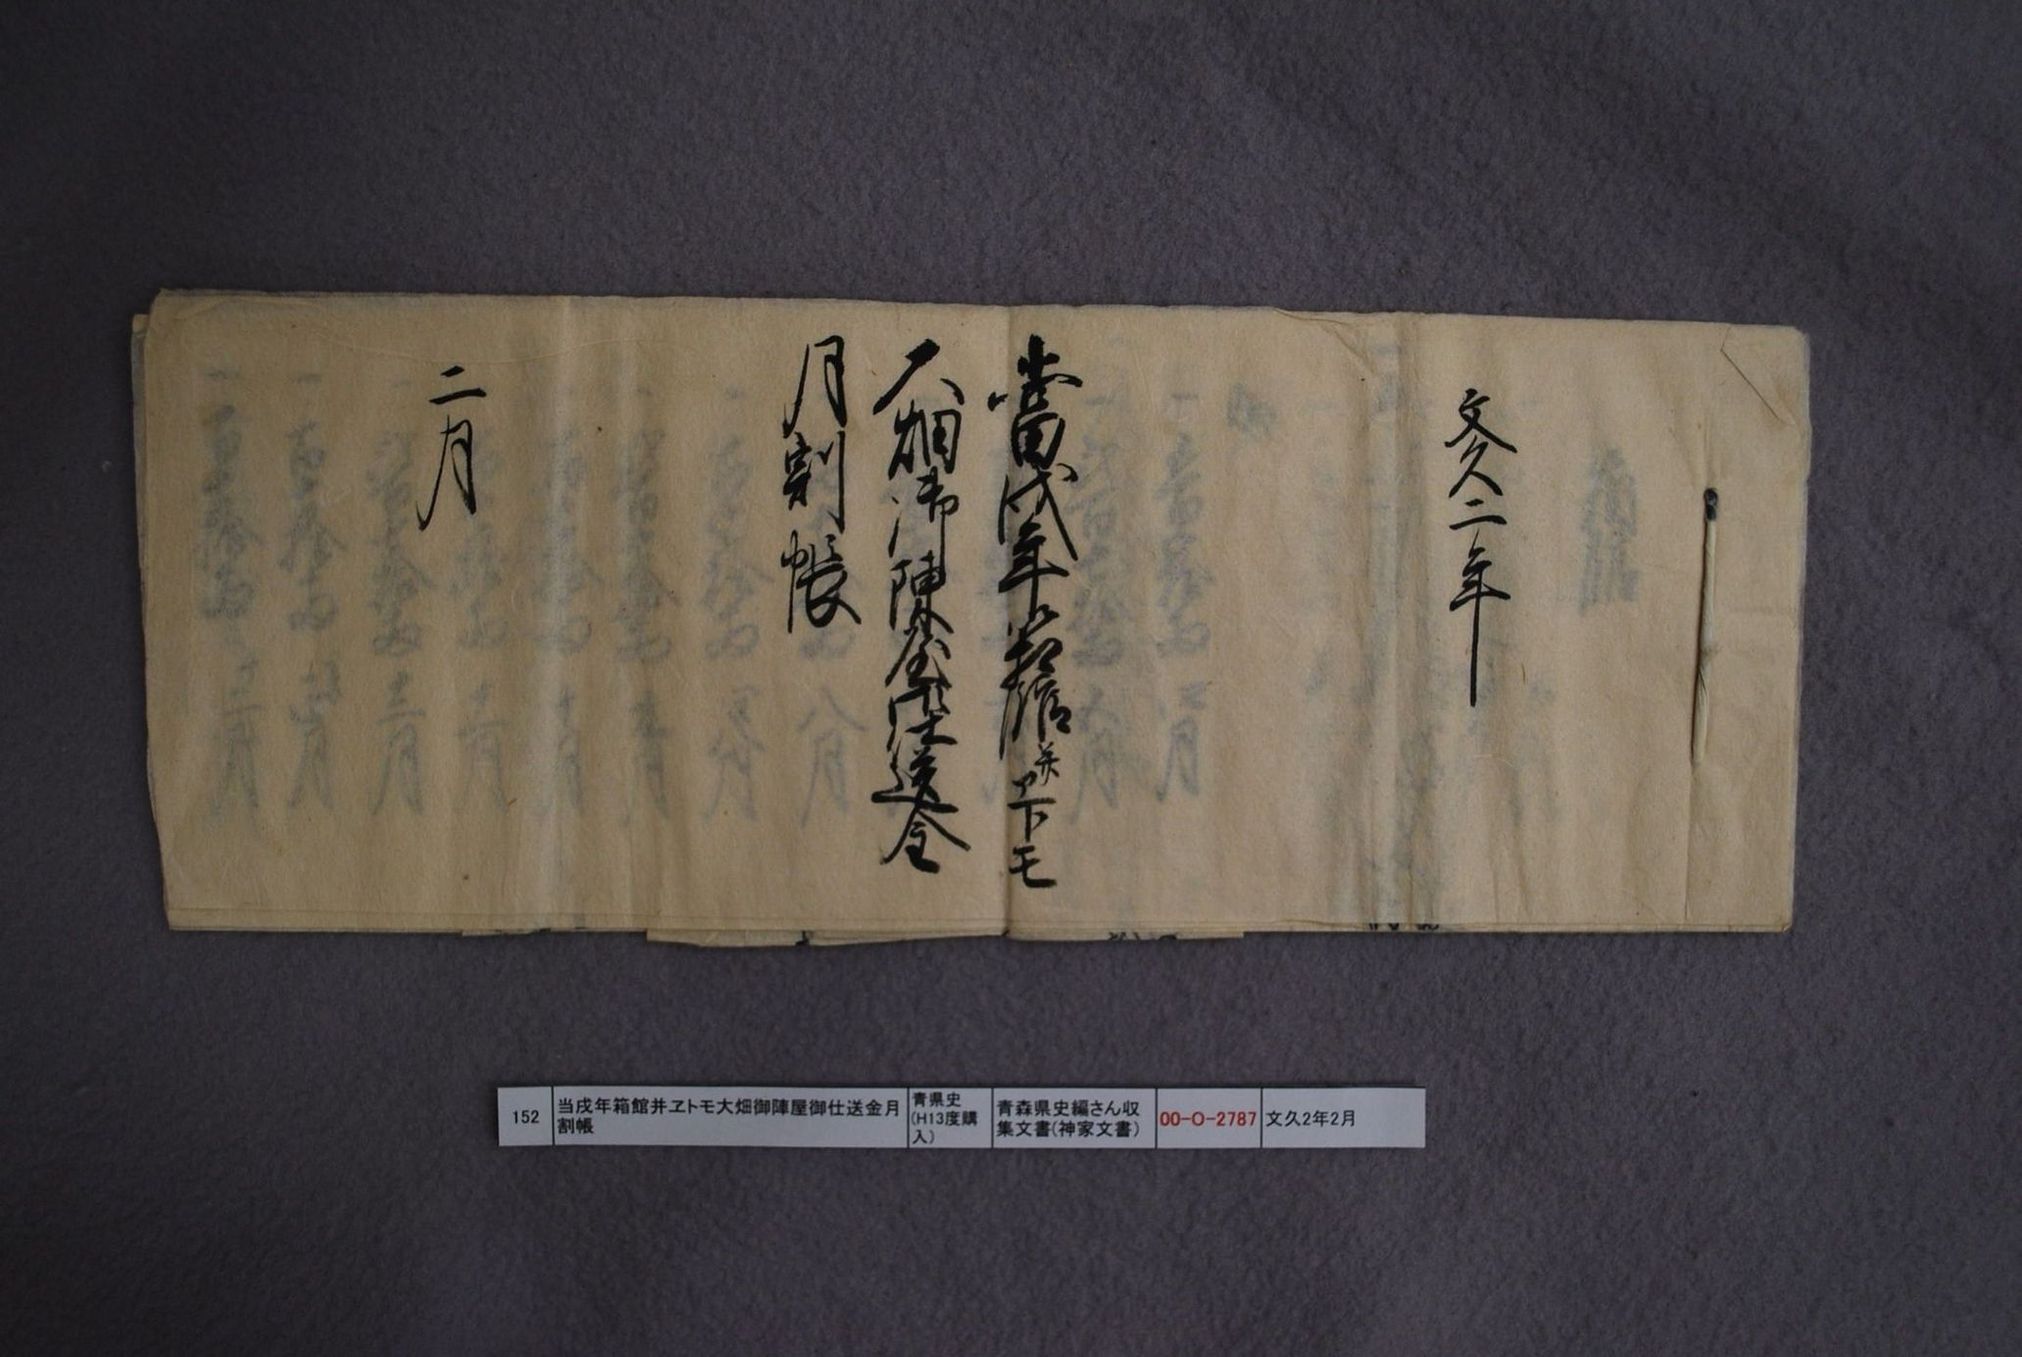 文久二年
當戌年箱館并ヱトモ
大畑御陣屋御仕送金
月割帳
二月
152
当戌年箱館并ヱトモ大畑御陣屋御仕送金月
割帳
青県史
(H13度購
入)
青森県史編さん収
集文書(神家文書)
00-O-2787
文久2年2月